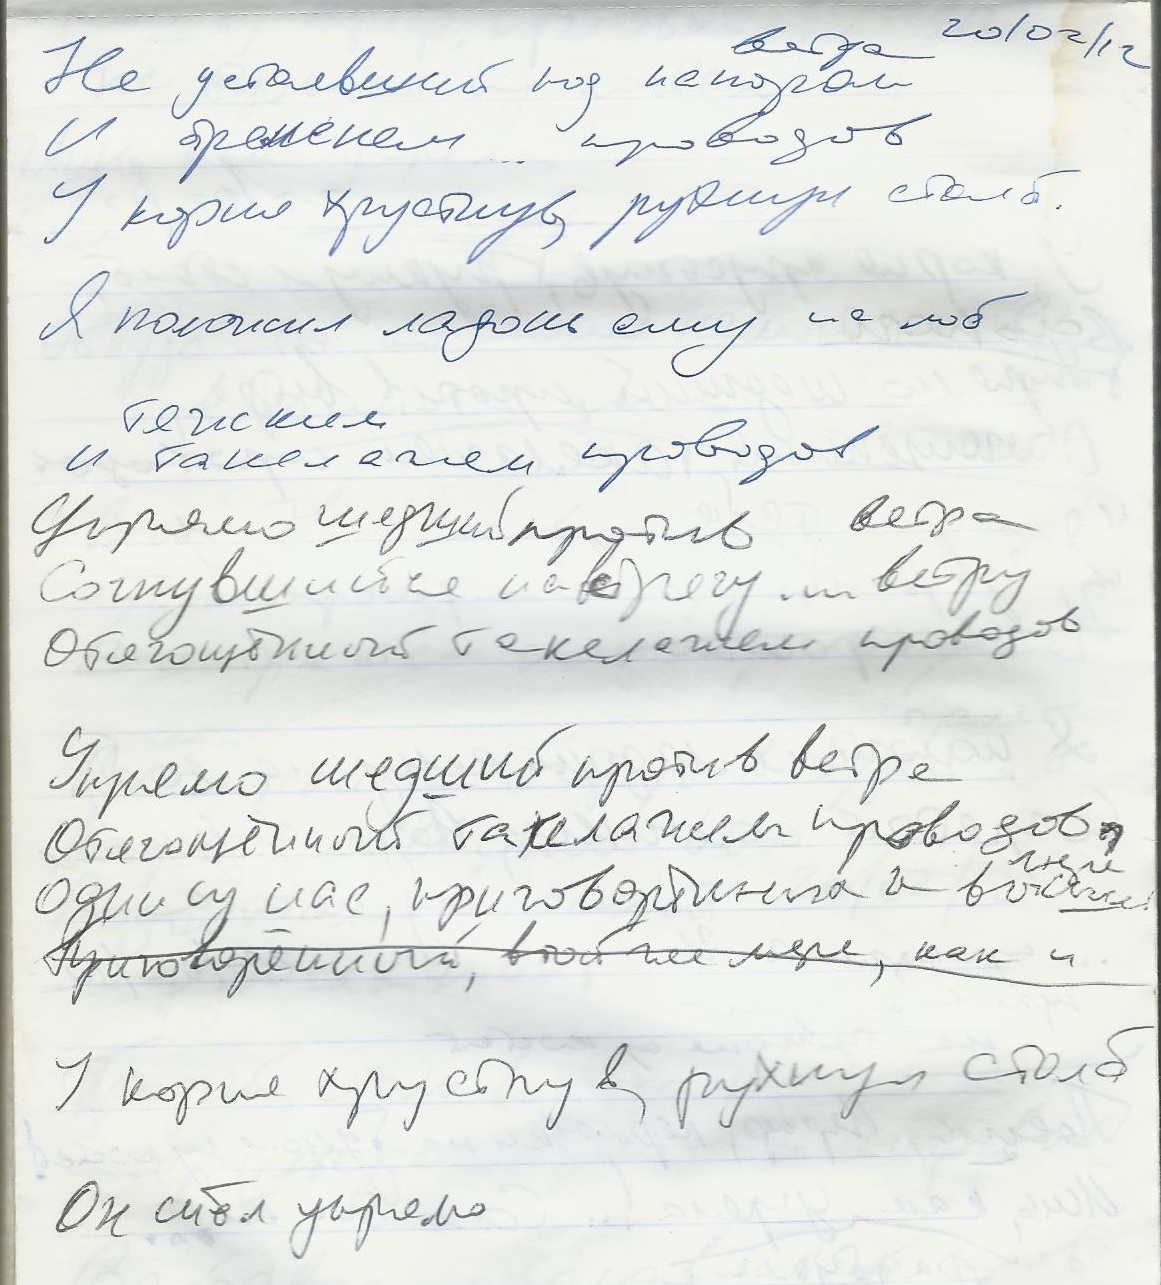 20/02/12
ветра
Не устоявший под напором
И бременем ... проводов
У корня хрустнув, рухнул столб.
Я положил ладонь ему на лоб
тяжким
и такелажем проводов
Упрямо шедший против ветра
Согнувшийся навстречу ... ветру
Отягощённый такелажем проводов
Упрямо шедший против ветра
Отягощённый такелажем проводов,
Один из нас, приговорённый и
Приговорённый, в той же мере, как и
У корня хрустнув, рухнул столб
Он стоял упрямо